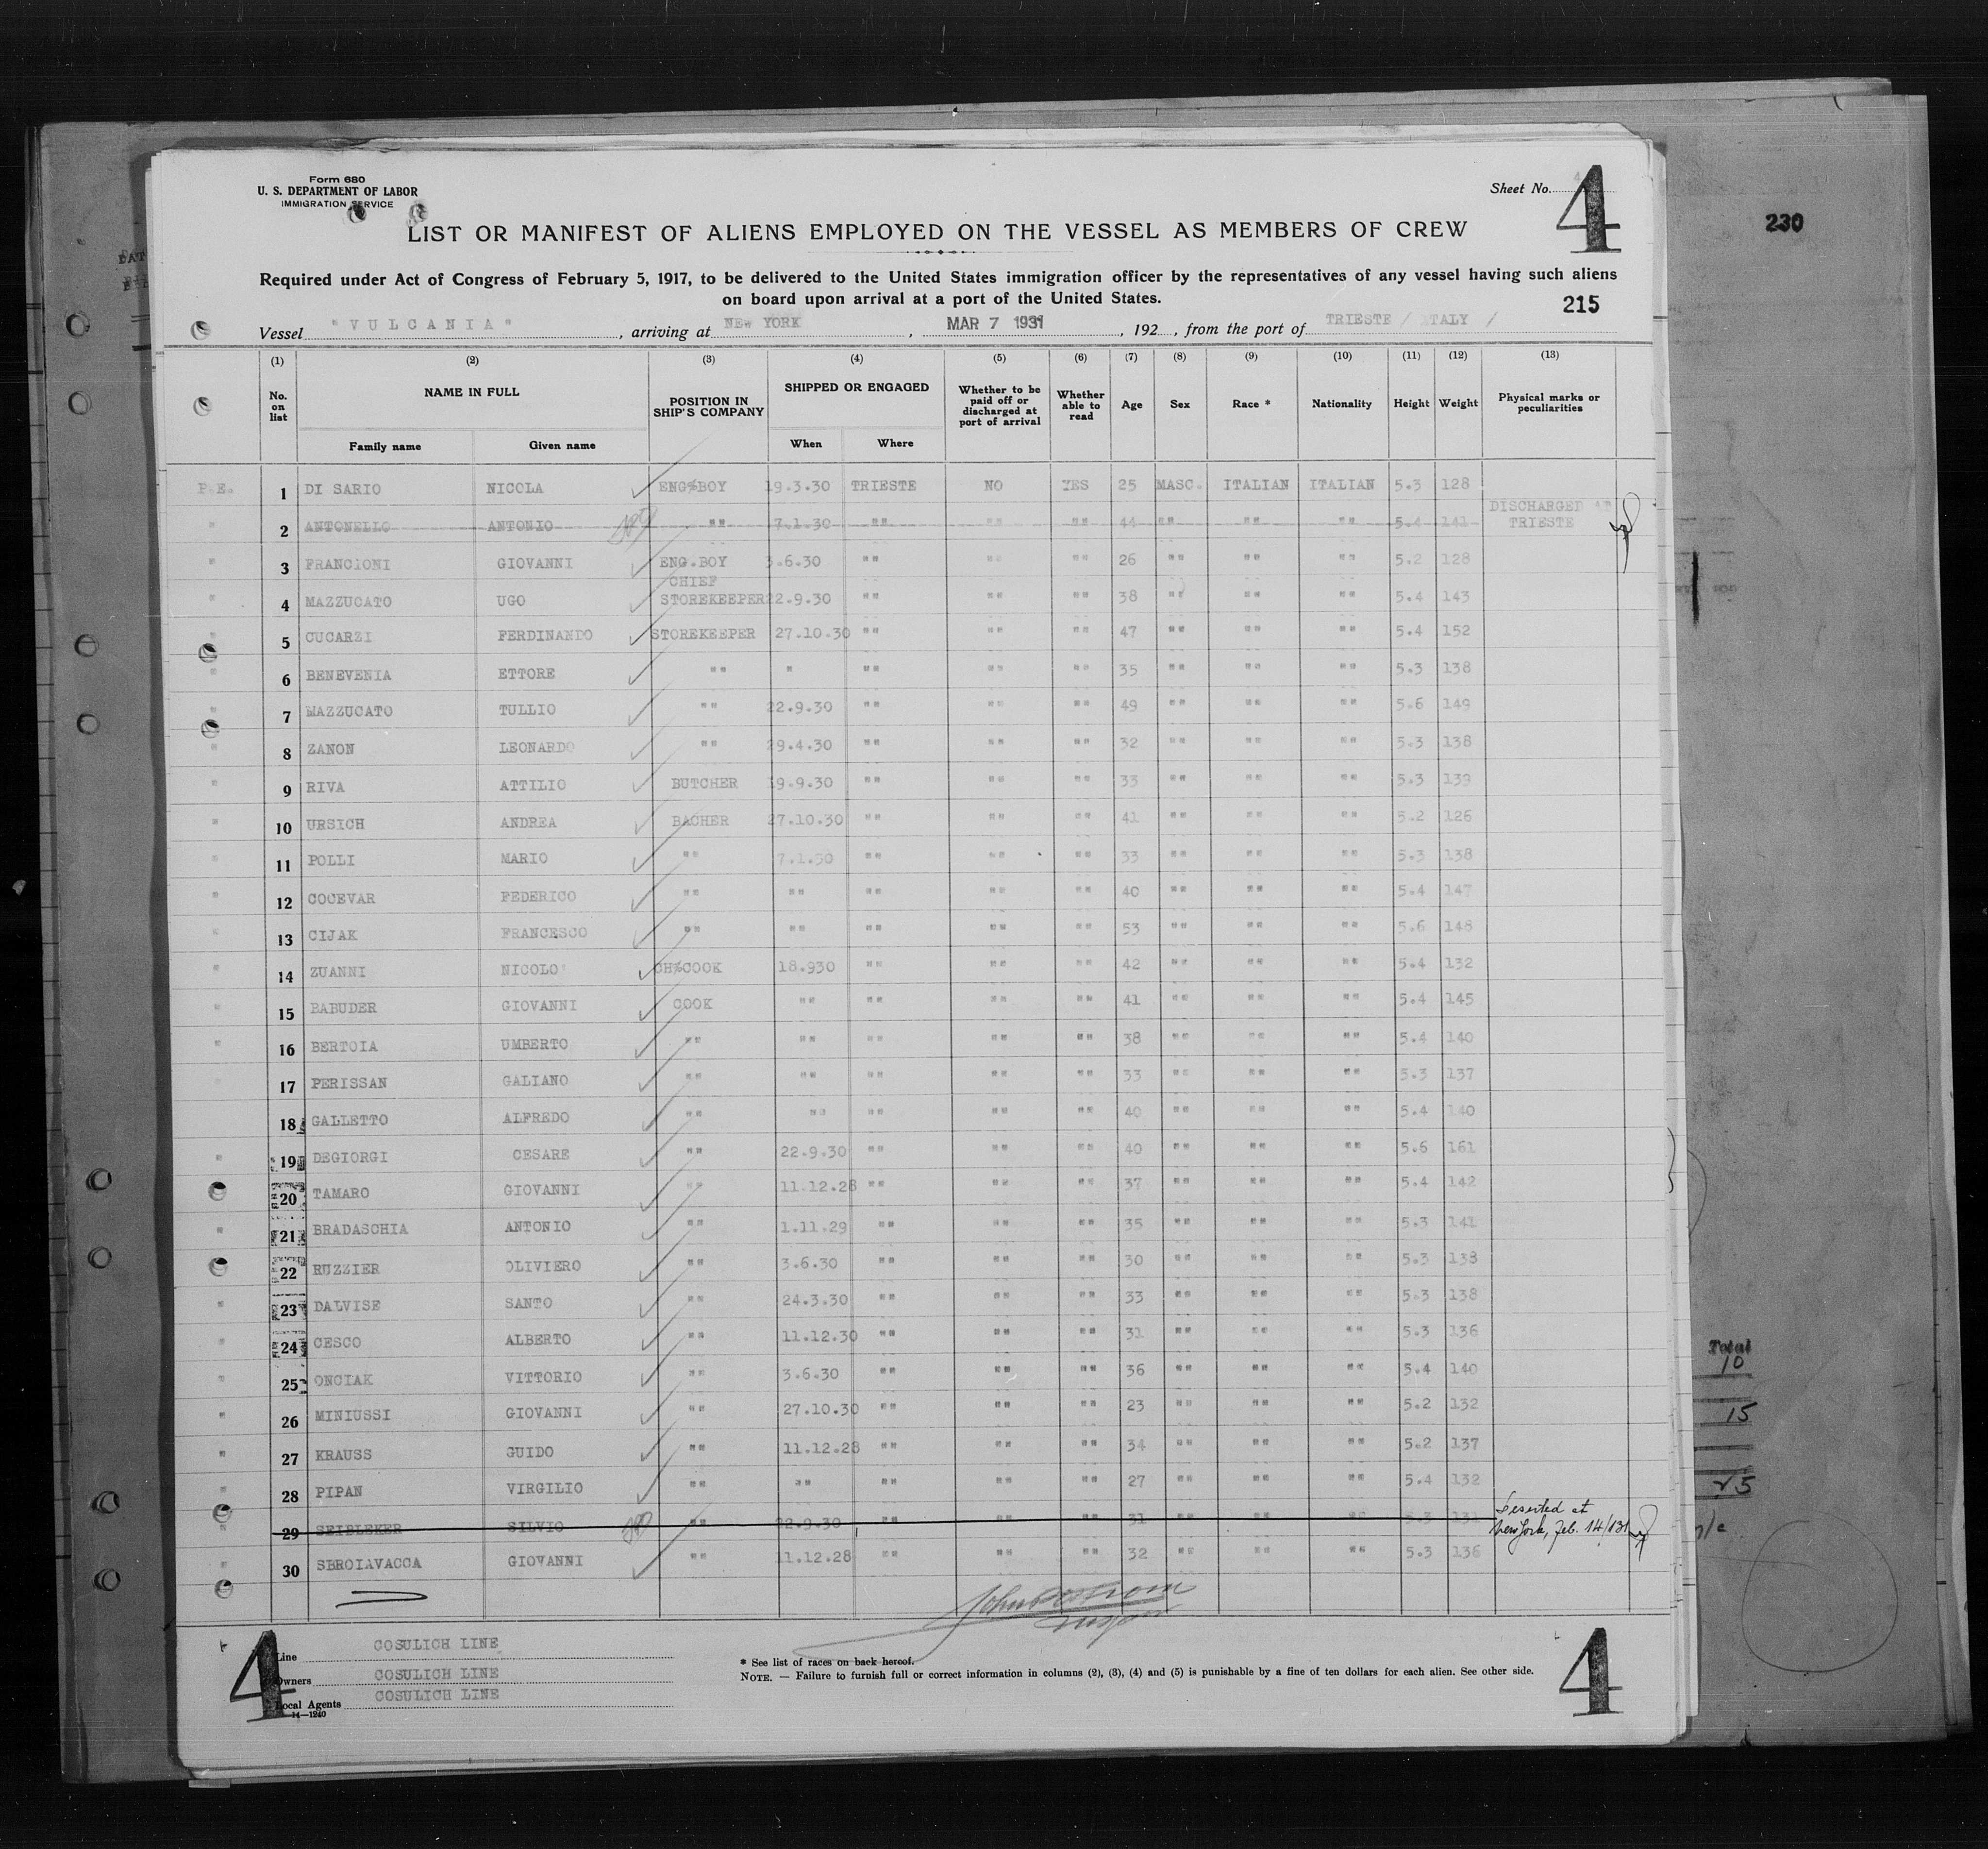 Form 680
U. S. DEPARTMENT OF LABOR
IMMIGRATION SERVICE
Sheet No. 4
4
230
LIST OR MANIFEST OF ALIENS EMPLOYED ON THE VESSEL AS MEMBERS OF CREW
Required under Act of Congress of February 5, 1917, to be delivered to the United States immigration officer by the representatives of any vessel having such aliens
on board upon arrival at a port of the United States.
215
Vessel "VULCANIA", arriving at NEW YORK, MAR 7 1931, 192 , from the port of TRIESTE / ITALY /
(1) (2) (3) (4) (5) (6) (7) (8) (9) (10) (11) (12) (13)
No. on list NAME IN FULL POSITION IN SHIP'S COMPANY SHIPPED OR ENGAGED Whether to be paid off or discharged at port of arrival Whether able to read Age Sex Race * Nationality Height Weight Physical marks or peculiarities
Family name Given name When Where
P.E. 1 DI SARIO NICOLA ENG.BOY 19.3.30 TRIESTE NO YES 25 MASC. ITALIAN ITALIAN 5.3 128
" 2 ANTONELLO ANTONIO "" 7.1.30 "" "" "" 44 "" "" "" 5.4 141 DISCHARGED AT TRIESTE
" 3 FRANCIONI GIOVANNI ENG.BOY 3.6.30 "" "" "" 26 "" "" "" 5.2 128
" 4 MAZZUCATO UGO CHIEF STOREKEEPER 22.9.30 "" "" "" 38 "" "" "" 5.4 143
" 5 CUCARZI FERDINANDO STOREKEEPER 27.10.30 "" "" "" 47 "" "" "" 5.4 152
" 6 BENEVENIA ETTORE "" " "" "" "" 35 "" "" "" 5.3 138
" 7 MAZZUCATO TULLIO "" 22.9.30 "" "" "" 49 "" "" "" 5.6 149
" 8 ZANON LEONARDO "" 29.4.30 "" "" "" 32 "" "" "" 5.3 138
" 9 RIVA ATTILIO BUTCHER 19.9.30 "" "" "" 33 "" "" "" 5.3 139
" 10 URSICH ANDREA BACHER 27.10.30 "" "" "" 41 "" "" "" 5.2 126
" 11 POLLI MARIO "" 7.1.30 "" "" "" 33 "" "" "" 5.3 138
" 12 COCEVAR FEDERICO "" "" "" "" "" 40 "" "" "" 5.4 147
" 13 CIJAK FRANCESCO "" "" "" "" "" 53 "" "" "" 5.6 148
" 14 ZUANNI NICOLO' CH.COOK 18.930 "" "" "" 42 "" "" "" 5.4 132
" 15 BABUDER GIOVANNI COOK "" "" "" "" 41 "" "" "" 5.4 145
" 16 BERTOIA UMBERTO "" "" "" "" "" 38 "" "" "" 5.4 140
17 PERISSAN GALIANO "" "" "" "" "" 33 "" "" "" 5.3 137
18 GALLETTO ALFREDO "" "" "" "" "" 40 "" "" "" 5.4 140
" 19 DEGIORGI CESARE "" 22.9.30 "" "" "" 40 "" "" "" 5.6 161
20 TAMARO GIOVANNI "" 11.12.28 "" "" "" 37 "" "" "" 5.4 142
" 21 BRADASCHIA ANTONIO "" 1.11.29 "" "" "" 35 "" "" "" 5.3 141
22 RUZZIER OLIVIERO "" 3.6.30 "" "" "" 30 "" "" "" 5.3 138
" 23 DALVISE SANTO "" 24.3.30 "" "" "" 33 "" "" "" 5.3 138
" 24 CESCO ALBERTO "" 11.12.30 "" "" "" 31 "" "" "" 5.3 136
" 25 ONCIAK VITTORIO "" 3.6.30 "" "" "" 36 "" "" "" 5.4 140
" 26 MINIUSSI GIOVANNI "" 27.10.30 "" "" "" 23 "" "" "" 5.2 132
" 27 KRAUSS GUIDO "" 11.12.28 "" "" "" 34 "" "" "" 5.2 137
" 28 PIPAN VIRGILIO "" "" "" "" "" 27 "" "" "" 5.4 132
" 29 SEIBLEKER SILVIO "" 22.9.30 "" "" "" 31 "" "" "" 5.3 131 Deserted at New York, Feb. 14/931
" 30 SBROIAVACCA GIOVANNI "" 11.12.28 "" "" "" 32 "" "" "" 5.3 136
Total
10
15
25
4
Line COSULICH LINE
Owners COSULICH LINE
Local Agents COSULICH LINE
14—1240
* See list of races on back hereof.
NOTE. — Failure to furnish full or correct information in columns (2), (3), (4) and (5) is punishable by a fine of ten dollars for each alien. See other side.
4